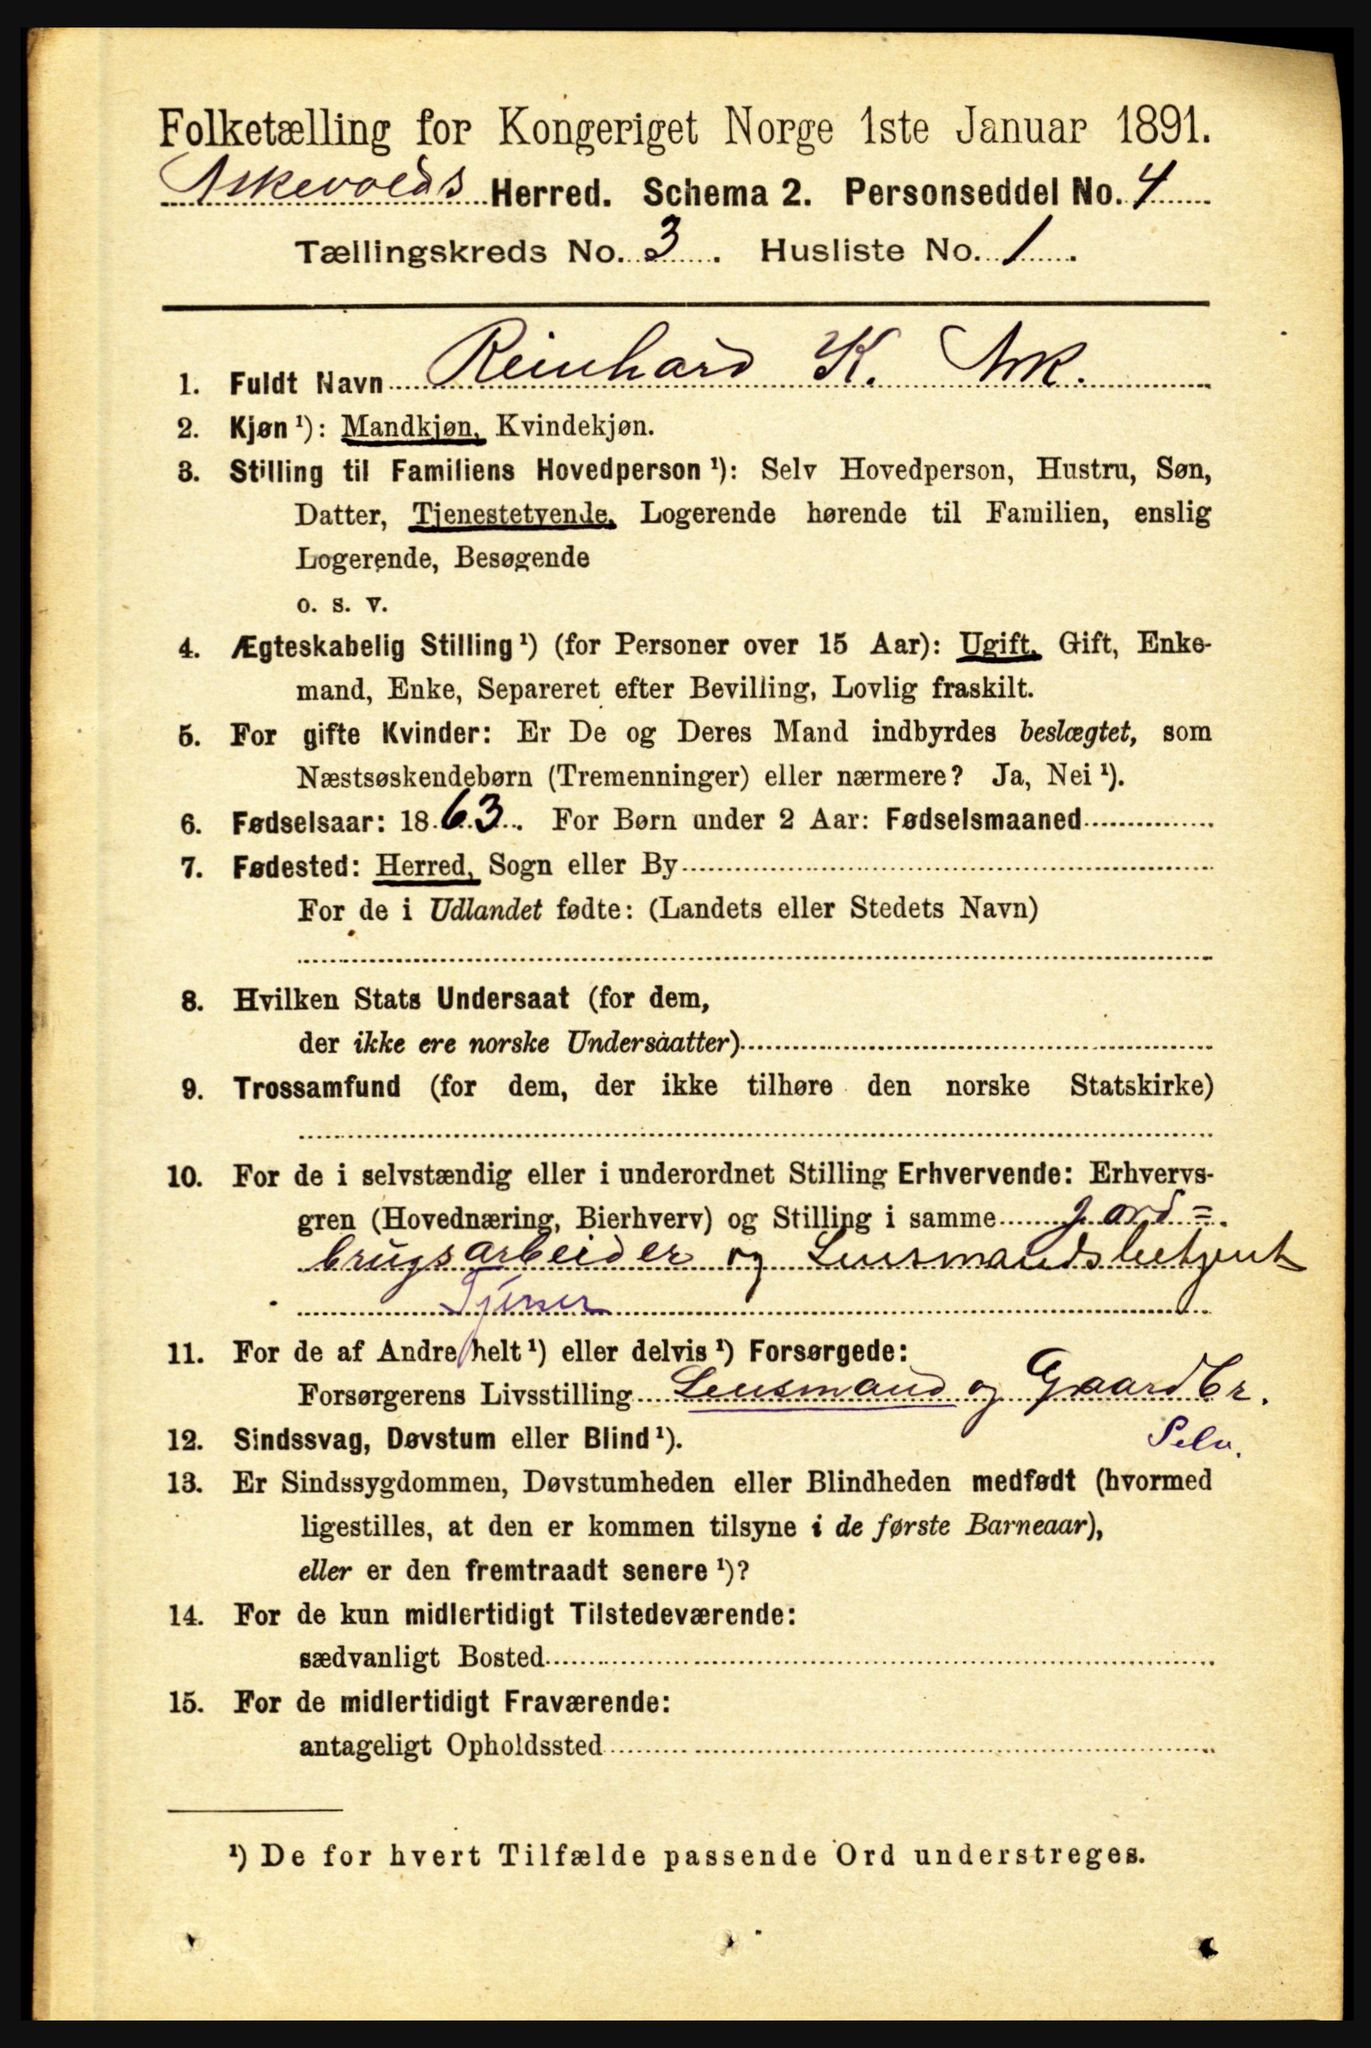 Folketælling for Kongeriget Norge 1ste Januar 1891.
Askevolds Herred. Schema 2. Personseddel No. 4
Tællingskreds No. 3. Husliste No. 1.
1. Fuldt Navn Reinhard K. Ask.
2. Kjøn ¹): Mandkjøn, Kvindekjøn.
3. Stilling til Familiens Hovedperson ¹): Selv Hovedperson, Hustru, Søn,
Datter, Tjenestetyende, Logerende hørende til Familien, enslig
Logerende, Besøgende
o. s. v.
4. Ægteskabelig Stilling ¹) (for Personer over 15 Aar): Ugift, Gift, Enke-
mand, Enke, Separeret efter Bevilling, Lovlig fraskilt.
5. For gifte Kvinder: Er De og Deres Mand indbyrdes beslægtet, som
Næstsøskendebørn (Tremenninger) eller nærmere? Ja, Nei ¹).
6. Fødselsaar: 1863. For Børn under 2 Aar: Fødselsmaaned
7. Fødested: Herred, Sogn eller By
For de i Udlandet fødte: (Landets eller Stedets Navn)
8. Hvilken Stats Undersaat (for dem,
der ikke ere norske Undersaatter)
9. Trossamfund (for dem, der ikke tilhøre den norske Statskirke)
10. For de i selvstændig eller i underordnet Stilling Erhvervende: Erhvervs-
gren (Hovednæring, Bierhverv) og Stilling i samme jord=
brugsarbeider og Lensmandsbetjent
Tjener
11. For de af Andre helt ¹) eller delvis ¹) Forsørgede:
Forsørgerens Livsstilling Lensmand og Gaardbr.
Selv.
12. Sindssvag, Døvstum eller Blind ¹).
13. Er Sindssygdommen, Døvstumheden eller Blindheden medfødt (hvormed
ligestilles, at den er kommen tilsyne i de første Barneaar),
eller er den fremtraadt senere ¹)?
14. For de kun midlertidigt Tilstedeværende:
sædvanligt Bosted
15. For de midlertidigt Fraværende:
antageligt Opholdssted
¹) De for hvert Tilfælde passende Ord understreges.